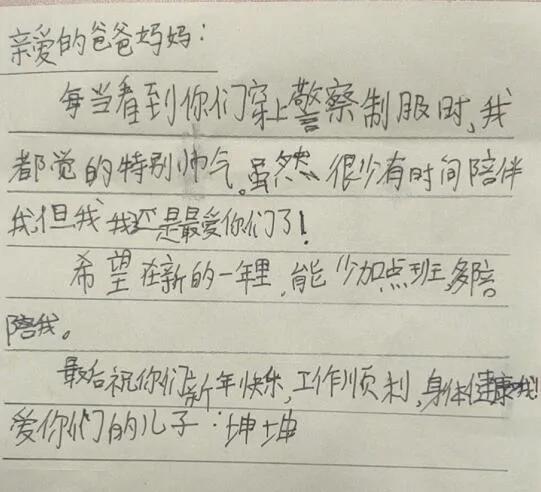 亲爱的爸爸妈妈:
每当看到你们穿上警察制服时,我
都觉的特别帅气。虽然很少有时间陪伴
我,但我我还是最爱你们了!
希望在新的一年里,能少加点班,多陪
陪我。
最后祝你们新年快乐,工作顺利,身体健康哦!
爱你们的儿子:坤坤